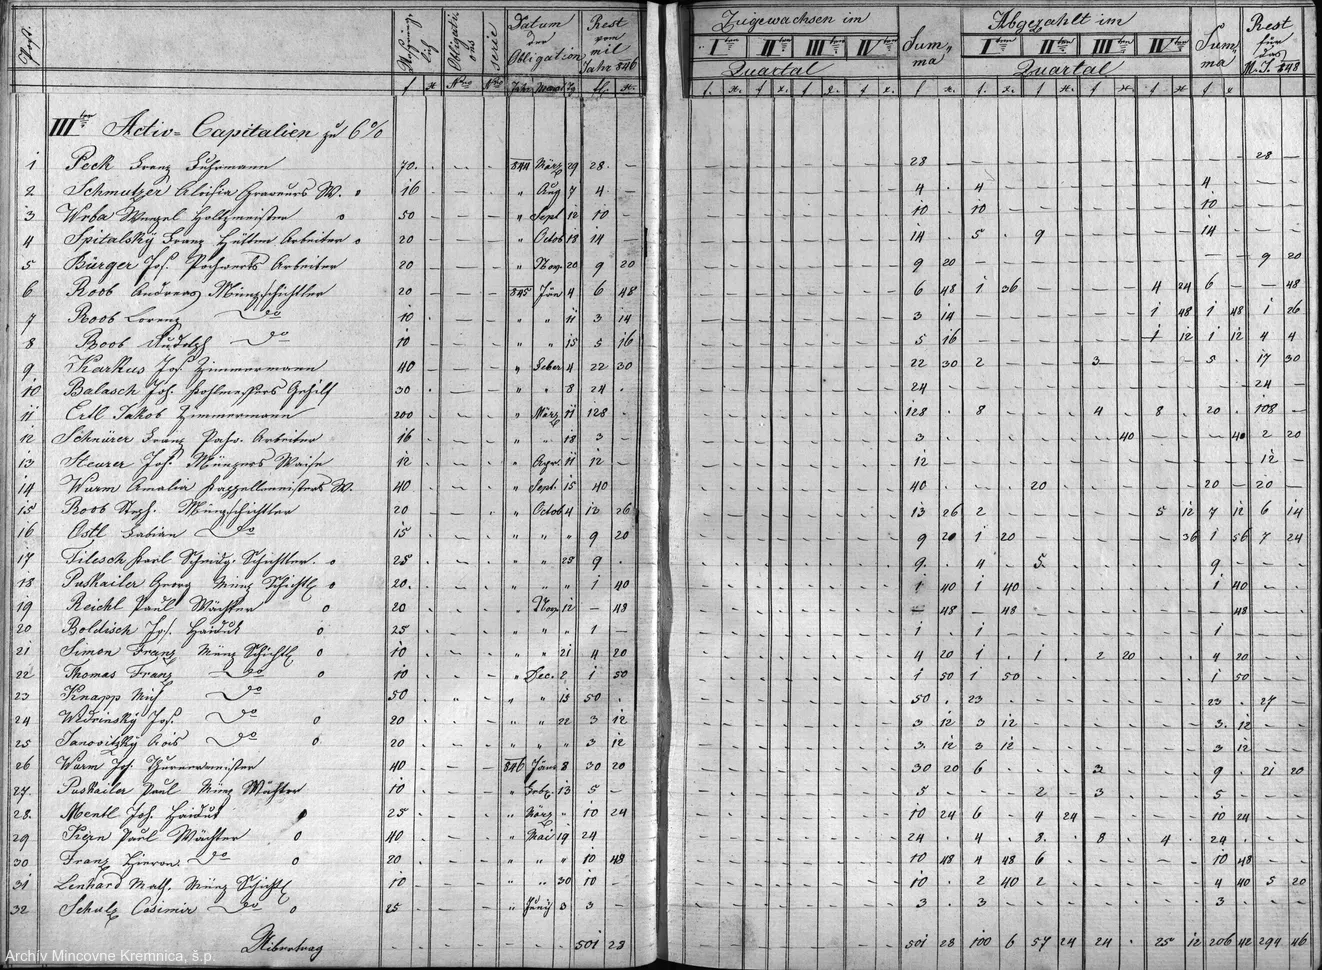 Post. Ursprüng- lich Obligations Serie Datum der Obligation Rest vom mil Jahr 846 Zugewachsen im Summa Abgezahlt im Summa Rest für das M. J. 848
I ten II ten III ten IV ten Quartal I ten II ten III ten IV ten Quartal
f x Nro Nro Jahr Monat Tg fl x f. x. f x f x. f x. f x. f. x. f x. f x. f x f x
III ter Activ-Capitalien zu 6%
1 Peck Franz Fuhrmann 70. 844 März 29 28 - 28 28 -
2 Schmutzer Aloisia Graveurs W. o 16 " Aug 7 4 - 4 . 4 4
3 Wrba Wenzel Holzmeister o 50 " Sept 12 10 - 10 . 10 10
4 Spitalský Franz Hütten Arbeiter o 20 " Octob 18 14 - 14 . 5 . 9 14
5 Bürger Jos. Pochwerks Arbeiter 20 " Nov. 20 9 20 9 20 9 20
6 Roob Andreas Münzschichtler 20 845 Jän 4 6 48 6 48 1 36 4 24 6 - - 48
7 Roob Lorenz do 10 " " 11 3 14 3 14 1 48 1 48 1 26
8 Roob Rudolph do 10 " " 15 5 16 5 16 1 12 1 12 4 4
9 Karkus Jos. Zimmermann 40 " Feber 4 22 30 22 30 2 3 5 . 17 30
10 Balasch Joh. Kohlmessers Gehilf 30 " " 8 24 . 24 24 -
11 Ertl Jakob Zimmermann 200 " März 11 128 . 128 . 8 4 8 20 . 108 -
12 Schnürer Franz Arbeiter 16 " " 18 3 - 3 40 40 2 20
13 Steurer Jos. Münzers Waise 12 " Apr. 11 12 - 12 12 -
14 Wurm Amalia Kappellmeisters W. 40 " Sept. 15 40 40 . 20 20 - 20 -
15 Roob Steph. Münzschichtler 20 " Octob 4 13 26 13 26 2 5 12 7 12 6 14
16 Ostl Fabian do 15 " " " 9 20 9 20 1 20 36 1 56 7 24
17 Filesch Karl Schmidg. Schichtler. o 25 " " 28 9 . 9 . 4 5 9
18 Puskailer Georg Münz Schichtl o 20. " " " 1 40 1 40 1 40 1 40
19 Reichl Paul Wächter o 20 " Nov 12 - 48 - 48 48 48
20 Boldisch Jos. Haiduk o 25 " " " 1 - 1 . 1 1
21 Simon Franz Münz Schichtl o 10 " " 21 4 20 4 20 1 . 1 . 2 20 4 20
22 Thomas Franz do o 10 " Dec. 2 1 50 1 50 1 50 1 50
23 Knapp do 50 " " 15 50 . 50 . 23 23 . 27 -
24 Wedrinský Jos. do o 20 " " 22 3 12 3 12 3 12 3 12
25 Janovitzký Alois do o 20 " " " 3 12 3 12 3 12 3 12
26 Wurm Joh. 40 846 Jäner 8 30 20 30 20 6 3 9 . 21 20
27 Puskailer Paul Münz Wächter 10 " Febr. 13 5 - 5 2 3 5
28 Mentl Joh. Haiduk o 25 " März " 10 24 10 24 6 4 24 10 24
29 Kern Paul Wächter o 40 " Mai 19 24 24 . 4 8 8 4 24
30 Franz Hieron. do o 20 " " " 10 48 10 48 4 48 6 10 48
31 Lenhard Math. Münz Schichtl 10 " " 30 10 - 10 . 2 40 2 4 40 5 20
32 Schulz Casimir do o 25 " Junij 3 3 - 3 . 3 3
Übertrag 501 28 501 28 100 6 57 24 24 . 25 12 206 42 294 46
Archív Mincovne Kremnica, š.p.